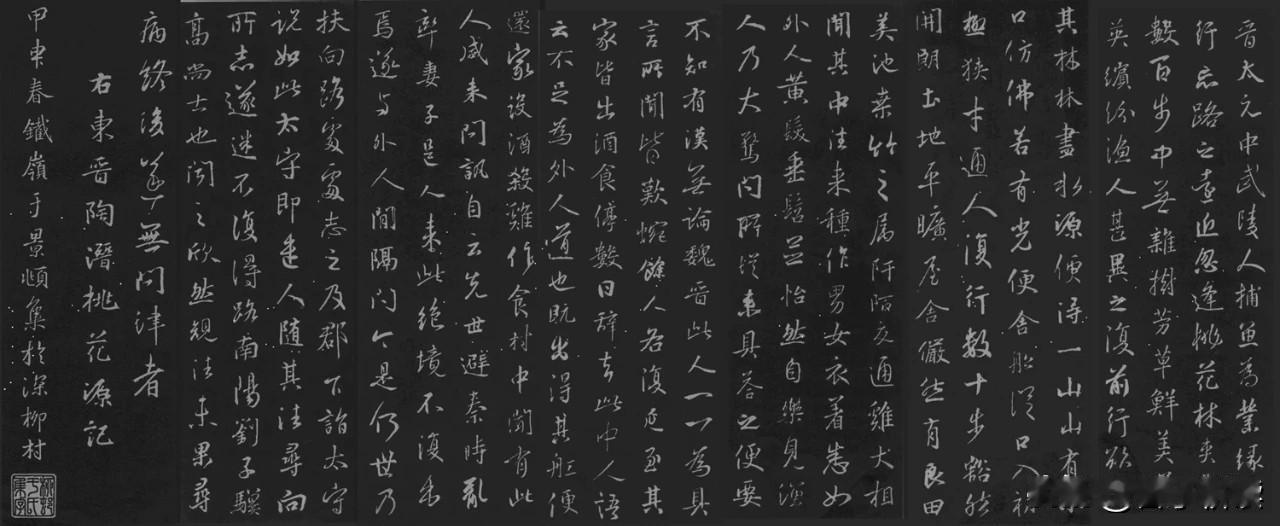 晉太元中武陵人捕魚為業緣
行忘路之遠近忽逢桃花林夾
數百步中無雜樹芳草鮮美
英繽紛漁人甚異之復前行欲
其林林盡水源便得一山山有
口仿佛若有光便舍船從口入初
極狹才通人復行數十步豁然
開朗土地平曠屋舍儼然有良田
美池桑竹之屬阡陌交通雞犬相
聞其中往來種作男女衣着悉如
外人黃髮垂髫並怡然自樂見漁
人乃大驚問所從來具答之便要
不知有漢無論魏晉此人一一為具
言所聞皆歎惋餘人各復延至其
家皆出酒食停數日辭去此中人語
云不足為外人道也既出得其船便
還家設酒殺雞作食村中聞有此
人咸來問訊自云先世避秦時亂
率妻子邑人來此絕境不復出
焉遂與外人間隔問今是何世乃
扶向路處處志之及郡下詣太守
說如此太守即遣人隨其往尋向
所志遂迷不復得路南陽劉子驥
高尚士也聞之欣然規往未果尋
病終後遂無問津者
右東晉陶潛桃花源記
甲申春鐵嶺于景頫集於深柳村